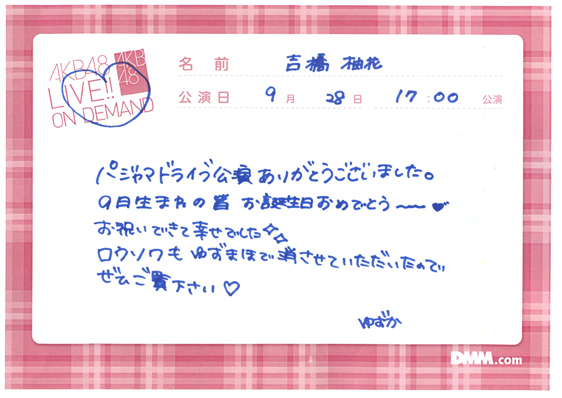 AKB48
LIVE!!
ON DEMAND
AKB
48
名前 吉橋 柚花
公演日 9月 28日 17:00 公演
パジャマドライブ公演ありがとうございました。
9月生まれの皆 お誕生日おめでとう〜〜♥
お祝いできて幸せでした
ロウソクも ゆずまほで消させていただいたので
ぜひご覧下さい♡
ゆずか
DMM.com